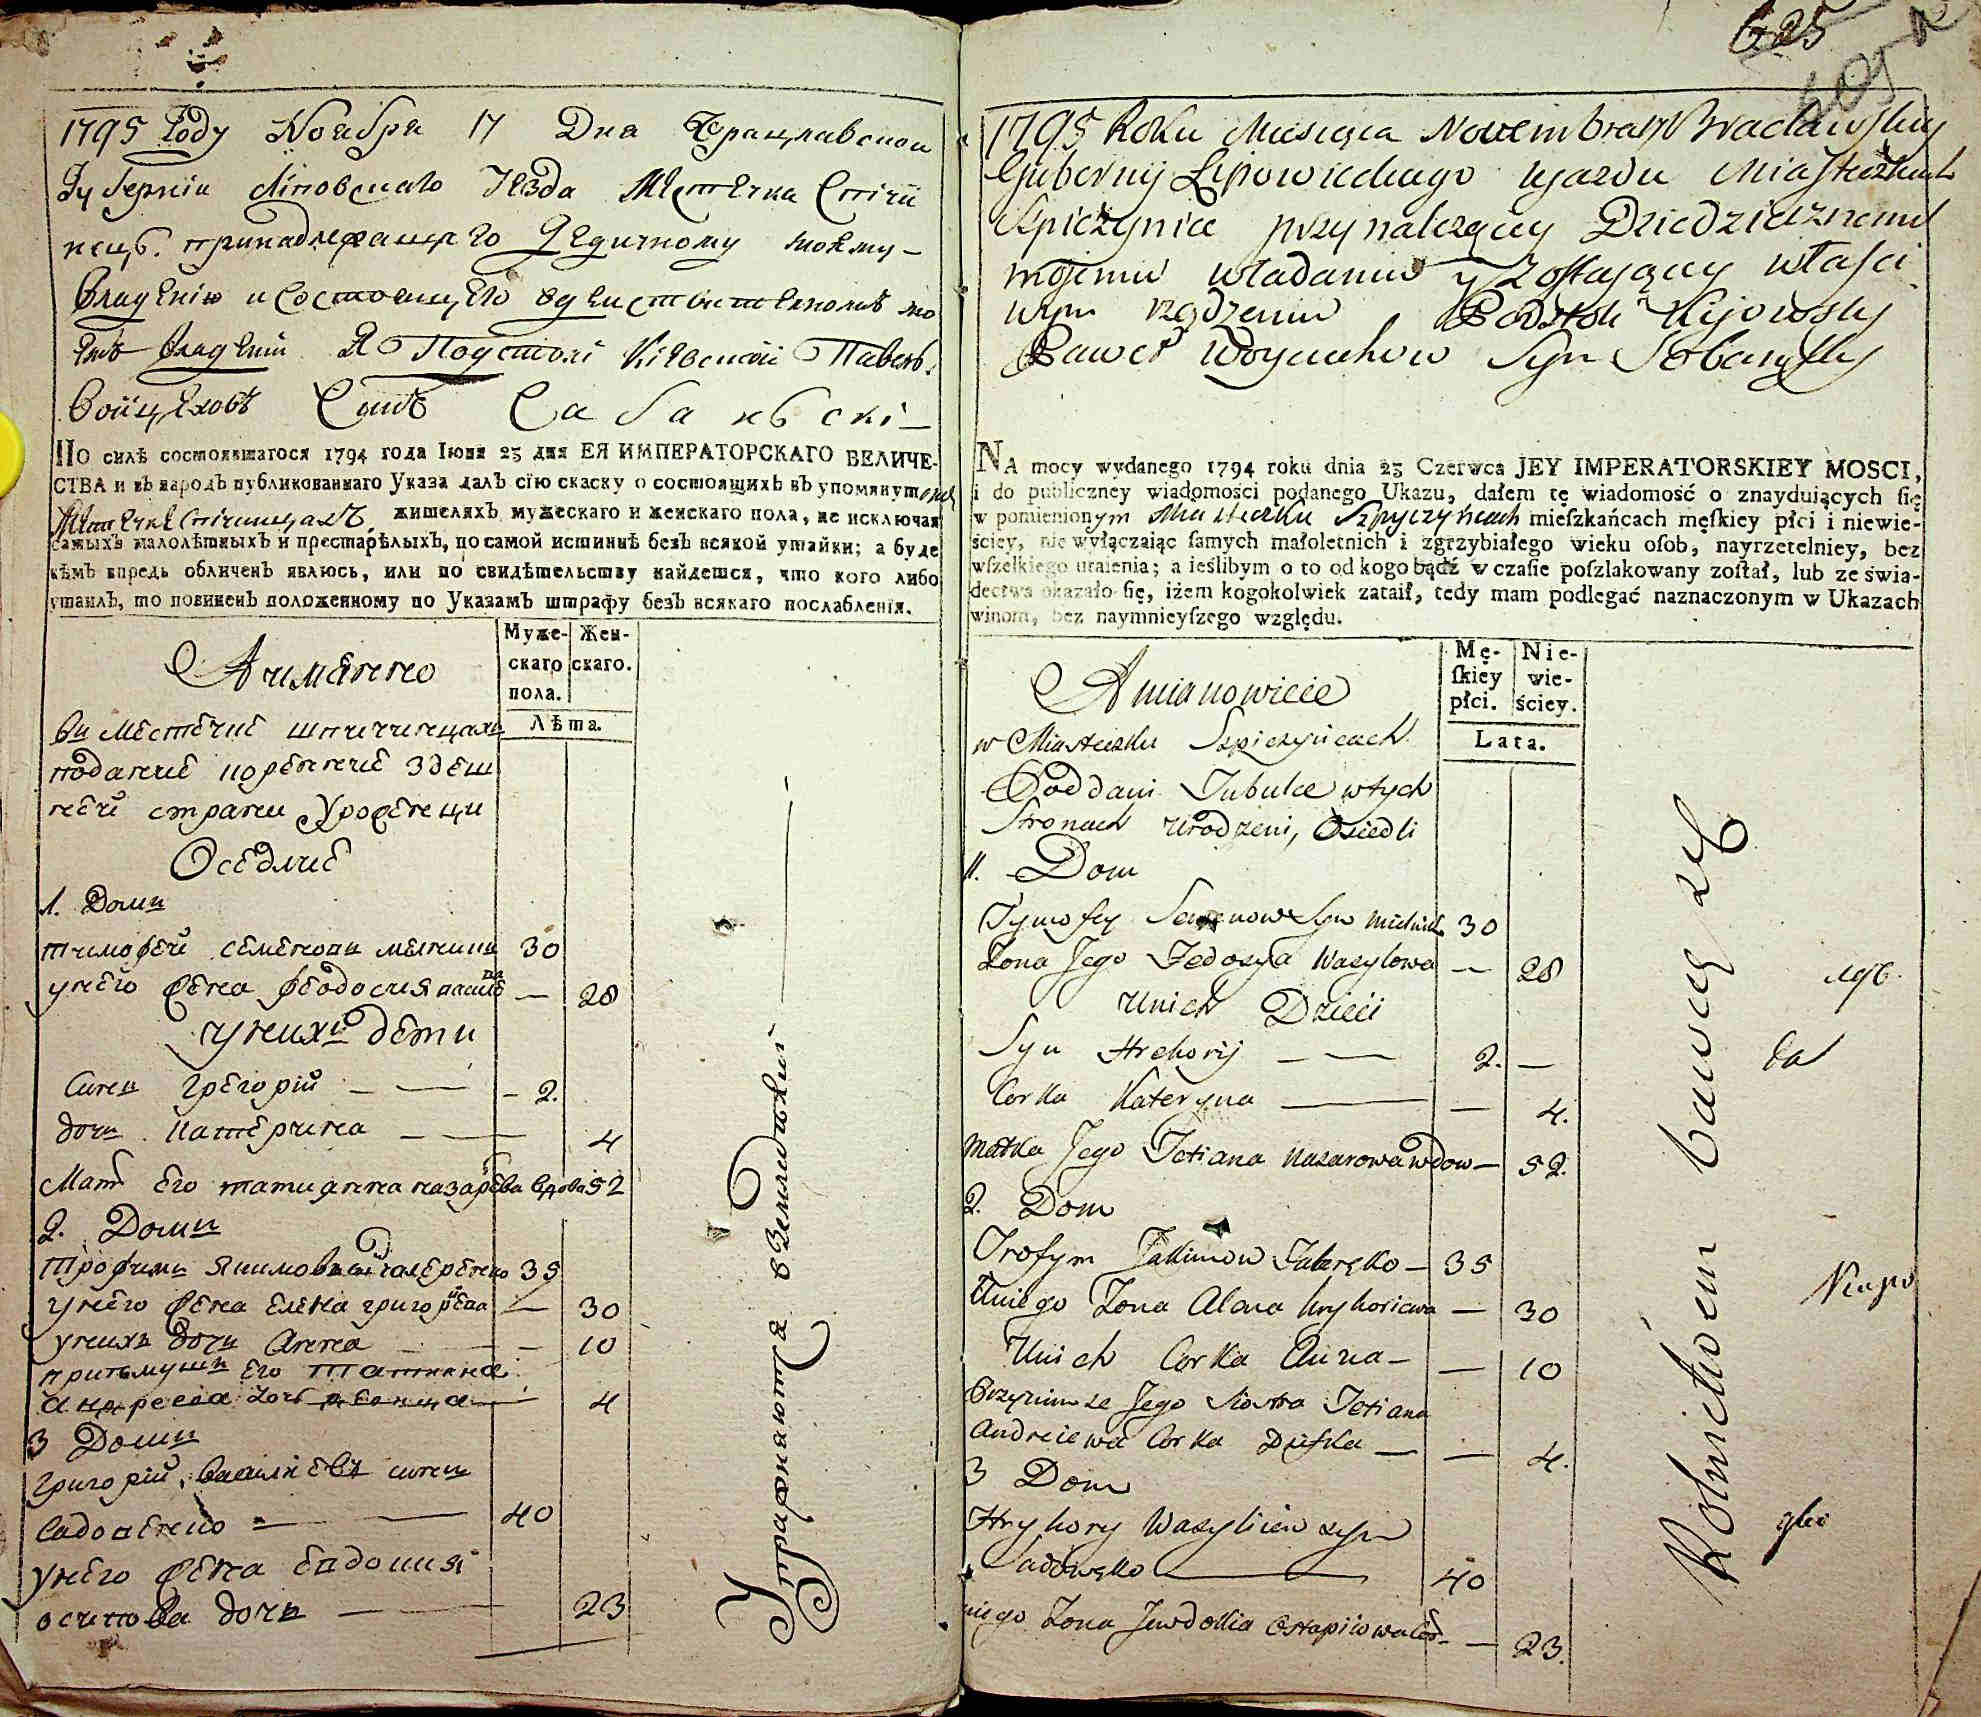 1795 Году Ноября 17 Дня Брацлавской
Губерніи Липовецкаго Уезда Местечка Спичи
нецъ. принадлежащего Дедичному моему
Владенію и состоящего в действительномъ мо
емъ владеніи Я Подстолі Кіевскій Павелъ
Войцеховъ Сынъ Сабанскі
ПО силѣ состоявшагося 1794 года Іюня 23 дня ЕЯ ИМПЕРАТОРСКАГО ВЕЛИЧЕ-
СТВА и въ народъ публикованнаго Указа далъ сїю скаску о состоящихъ въ упомянутомъ
Местечке Спичинцахъ жителяхъ мужескаго и женскаго пола, не исключая
самыхъ малолѣтныхъ и престарѣлыхъ, по самой истиннѣ безъ всякой утайки; а буде
кѣмъ впредь обличенъ явлюсь, или по свидѣтельству найдется, что кого либо
утаилъ, то повиненъ положенному по Указамъ штрафу безъ всякаго послабленїя.
Муже-
скаго
пола.
Жен-
скаго.
Лѣта.
А имянно
въ местечке шпичинцахъ
подание коренние здеш
ней страни Уроженци
Оседлие
1. Домъ
тимофей семеновъ мелникъ 30
унего жена феодосия — 28
унихъ дети
синъ григорій — — - 2.
дочъ катерина — — 4
Мать его татианна назарева вдова 52
2. Домъ
трофимъ якимовъ 35
унего жена елена григорева — 30
унихъ дочъ анна — — - 10
его татияна
андреева дочъ — 4
3 Домъ
григорій васильевъ синъ
садовенко — 40
унего жена евдокия
осипова дочъ — 23
625
1795 Roku Miesiąca Novembra 17 Bracławskiey
Gubernij Lipowieckiego ujazdu Miasteczka
Spiczyniec przynalezący Dziedzicznemu
mojemu władaniu y zostający właści
wym rządzeniu, Podstoli Kijowsky
Paweł Woyciechow Syn Sobansky
NA mocy wydanego 1794 roku dnia 23 Czerwca JEY IMPERATORSKIEY MOSCI,
i do publiczney wiadomości podanego Ukazu, dałem tę wiadomość o znayduiących się
w pomienionym Miasteczku Szpyczyńcach mieſzkańcach męſkiey płci i niewie-
ściey, nie wyłączaiąc ſamych małoletnich i zgrzybiałego wieku oſob, nayrzetelniey, bez
wszelkiego utaienia; a ieślibym o to od kogo bądź w czaſie poſzlakowany zoſtał, lub ze świa-
dectwa okazało ſię, iżem kogokolwiek zataił, tedy mam podlegać naznaczonym w Ukazach
winom, bez naymnieyſzego względu.
Mę-
ſkiey
płci.
Nie-
wie-
ściey.
Lata.
A mianowicie
w Miasteczku Szpiczyńcach
Poddani Tubulce w tych
Stronach urodzeni, Osiedli
1. Dom
Tymofiy Semenow Syn Mielnik 30
Zona Jego Fedosya Wasylowa — 28
Unich Dzieci
Syn Hrehorij — — 2. —
Corka Kateryna — — 4.
Matka Jego Tetiana Nazarowa wdow — 52.
2. Dom
Trofym Jakimow — 35
Uniego Zona Alona hryhoriewa — 30
Unich Corka Anna — — 10
Jego Siostra Tetiana
Andreiewa Corka — — 4.
3 Dom
Hryhory Wasyliew syn
Sadowęko — 40
niego Zona Jewdokia Ostapiowa — 23.
Упражняются в Земляделии
Rolnictwem bawią się